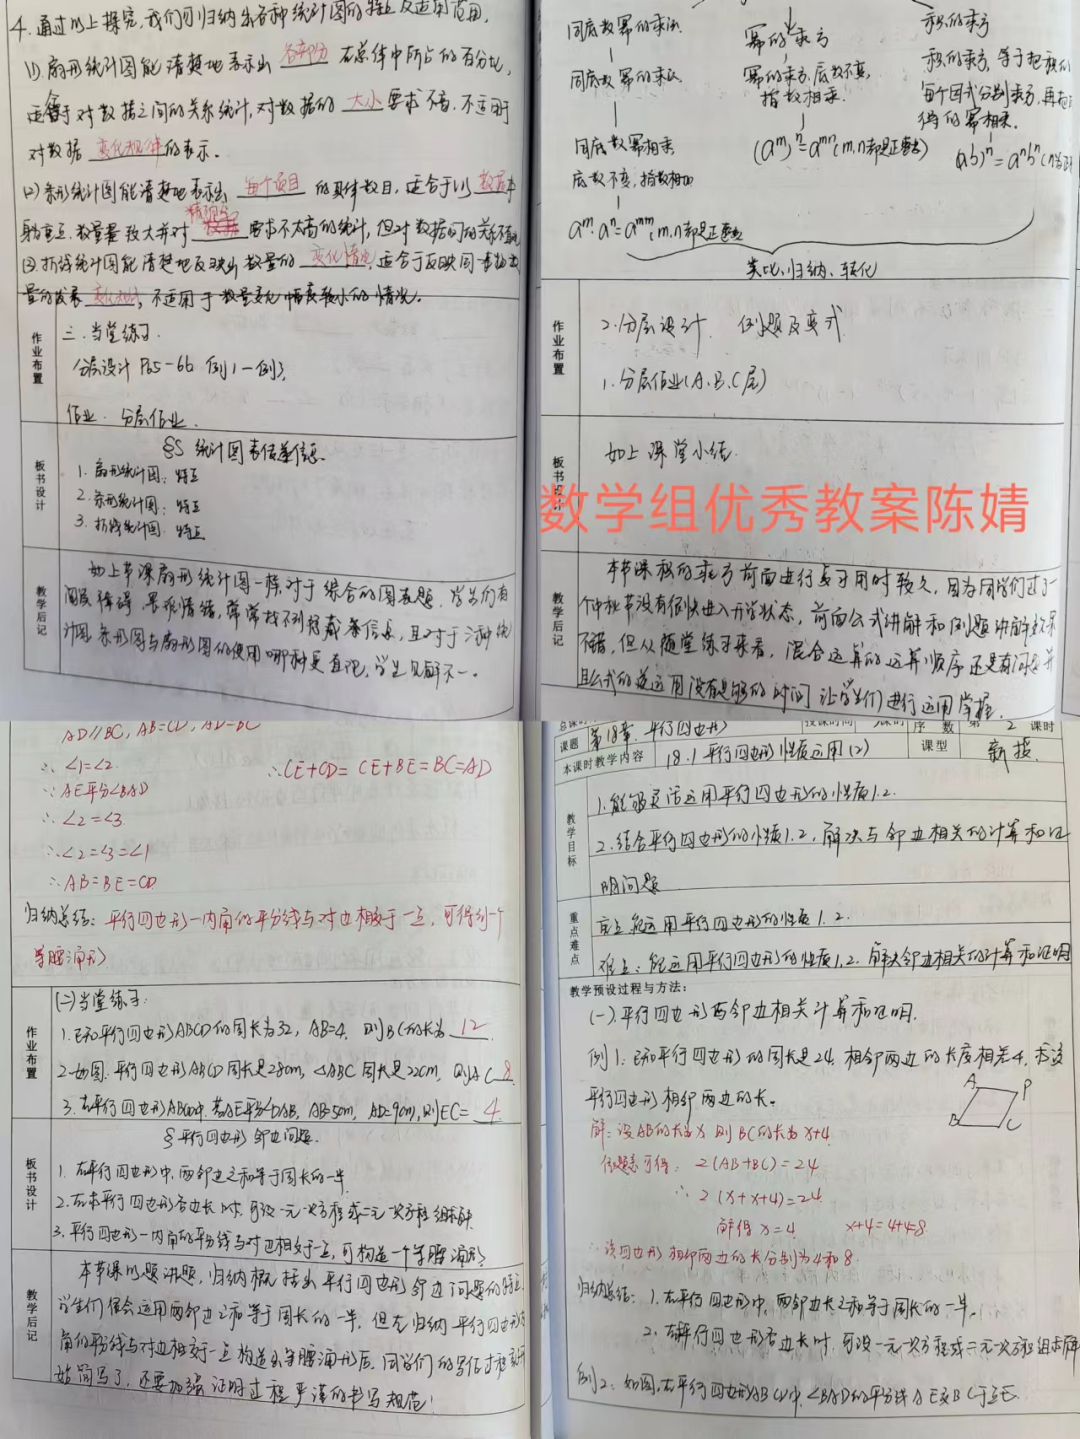 4. 通过以上探究,我们可归纳出各种统计图的特点及适用范围.
(1). 扇形统计图能清楚地表示出 各部分 在总体中所占的百分比,
适合于对数据之间的关系统计,对数据的 大小 要求不高.不适用
对数据 变化规律 的表示.
(2) 条形统计图能清楚地表示出 每个项目 的具体数目,适合于以 数据本
身为重点.数量差较大并对 精确度 要求不太高的统计,但对数据间的关系不
(3). 折线统计图能清楚地反映出数量的 变化情况,适合于反映同一事物
量的发展 变化规律,不适用于数量变化幅度较小的情况.
作业布置
三.当堂练习.
分层设计 P65-66 例1-例3
作业. 分层作业.
板书设计
§5 统计图表传递信息.
1. 扇形统计图:特点
2. 条形统计图:特点
3. 折线统计图.特点
教学后记
如上节课扇形统计图一样,对于综合的图表题.学生们有
阅读障碍,畏难情绪,常常找不到
计图.条形图与扇形图的使用哪种更直观,学生见解不一.
同底数幂的乘法
幂的乘方
积的乘方
同底数幂的乘法
幂的乘方.底数不变,
指数相乘.
积的乘方,等于把积的
每个因式分别乘方,再把
得的幂相乘.
同底数幂相乘
底数不变,指数相加
(aᵐ)ⁿ=aᵐⁿ(m,n都是正整数)
(ab)ⁿ=aⁿbⁿ(n
aᵐ·aⁿ=aᵐ⁺ⁿ(m,n都是正整数
类比、归纳、转化
作业布置
2.分层设计. 例题及变式
1.分层作业(A.B.C层)
板书设计
如上课堂小结.
数学组优秀教案陈婧
教学后记
本节课积的乘方前面进行复习用时较久,因为同学们过了一
个中秋节没有很快进入开学状态,前面公式讲解和例题讲解效果
不错,但从随堂练习来看,混合运算的运算顺序还是有问题并
且公式的逆运用没有足够的时间让学生们进行运用掌握.
AD//BC, AB=CD, AD=BC
∴ ∠1=∠2.
∵ AE平分∠BAD
∴ ∠2=∠3.
∴ ∠2=∠3=∠1
∴ AB=BE=CD
∴CE+CD= CE+BE=BC=AD
归纳总结:平行四边形一内角的平分线与对边相交于一点,可得到一个
等腰三角形
作业布置
(二)当堂练习:
1.已知平行四边形ABCD的周长为32, AB=4. 则BC的长为 12.
2.如图.平行四边形ABCD周长是28cm,△ABC周长是22cm,则AC 8
3.在平行四边形ABCD中.若AE平分∠DAB, AB=5cm, AD=9cm,则EC= 4.
板书设计
§平行四边形邻边问题.
1. 在平行四边形中,两邻边之和等于周长的一半.
2. 在求平行四边形各边长时,可设一元一次方程或二元一次方程组求解
3. 平行四边形一内角的平分线与对边相交于一点,可构造一个等腰三角形
教学后记
本节课以题讲题,归纳概括出平行四边形邻边问题的特点
学生们很会运用两邻边之和等于周长的一半.但在归纳平行四边形内
角的平分线与对边相交于一点构造出等腰三角形后,同学们的书写过程
始简写了,还要加强证明过程严谨的书写规范!
课题
第18章. 平行四边形
授课时间
课时
序 数
第 2 课时
本课时教学内容
18.1平行四边形性质运用(2)
课型
新授.
教学目标
1.能够灵活运用平行四边形的性质1.2.
2.结合平行四边形的性质1.2,解决与邻边相关的计算和证
明问题
重点难点
重点:能运用平行四边形的性质1.2.
难点:能运用平行四边形的性质1.2.解决邻边相关的计算和证明
教学预设过程与方法:
(一).平行四边形两邻边相关计算和证明.
例1:已知平行四边形的周长是24.相邻两边的长度相差4,求该
平行四边形相邻两边的长.
A
D
B
C
解:设AB的长为x 则BC的长为x+4.
依题意可得: 2(AB+BC)=24
∴ 2(x+x+4)=24.
解得 x=4 x+4=4+4=8
∴该四边形相邻两边的长分别为4和8.
归纳总结: 1.在平行四边形中,两邻边长之和等于周长的一半.
2. 在求平行四边形各边长时,可设一元一次方程或二元一次方程组求解
例2:如图,在平行四边形ABCD中,∠BAD的平分线AE交BC于点E.